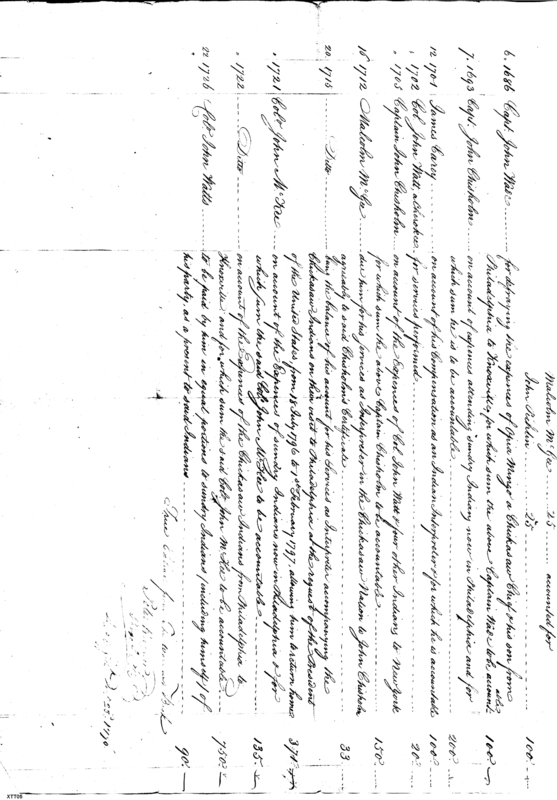 Malcolm McGee .... 25 accounted for
John Pchlin ....... 25 ........ 100. "
6. 1686 Capt. John Wade ....... for defraying the expences of Opia Mingo a Chickasaw Chief & his son from
Philadelphia to Knoxville, for which sum the above Captain Wade to be account-
able ........ 100. "
7. 1693 Capt. John Chisholm ....... on account of expences attending sundry Indians now in Philadelphia and for
which sum he is to be accountable ........ 200. "
12 1701 James Carey ........ on account of his Compensation as an Indian Interpreter & for which he is accountable 100. "
" 1702 Col. John Watt, a Cherokee .. for services performed ........ 20. "
" 1705 Captain John Chisholm .... on account of the Expences of Col. John Watt & four other Indians to New York
for which sum the above Captain Chisholm to be accountable ........ 150. "
16 1712 Malcolm McGee ........ due him for his services as Interpreter in the Chickasaw Nation to John Chisholm
agreeably to said Chisholm's Certificate ........ 33
20. 1715 ........ Ditto ........ being the balance of his account for his Services as Interpreter accompanying the
Chickasaw Indians on their visit to Philadelphia at the request of the President
of the United States from 15 July 1796 to 1st February 1797. allowing him to return home 371.
" 1721 Colo. John McKee ........ on account of the Expences of sundry Indians now in Philadelphia & for
which sum the said Col. John McKee to be accountable ........ 135. "
" 1722 ........ Ditto ........ on account of the Expences of the Chickasaw Indians from Philadelphia to
Knoxville and for which sum the said Colo. John McKee to be accountable ........ 750. "
22 1726 Colo. John Watts ........ to be paid by him in equal portions to sundry Indians (including himself) of
his party, as a present to said Indians ........ 90. "